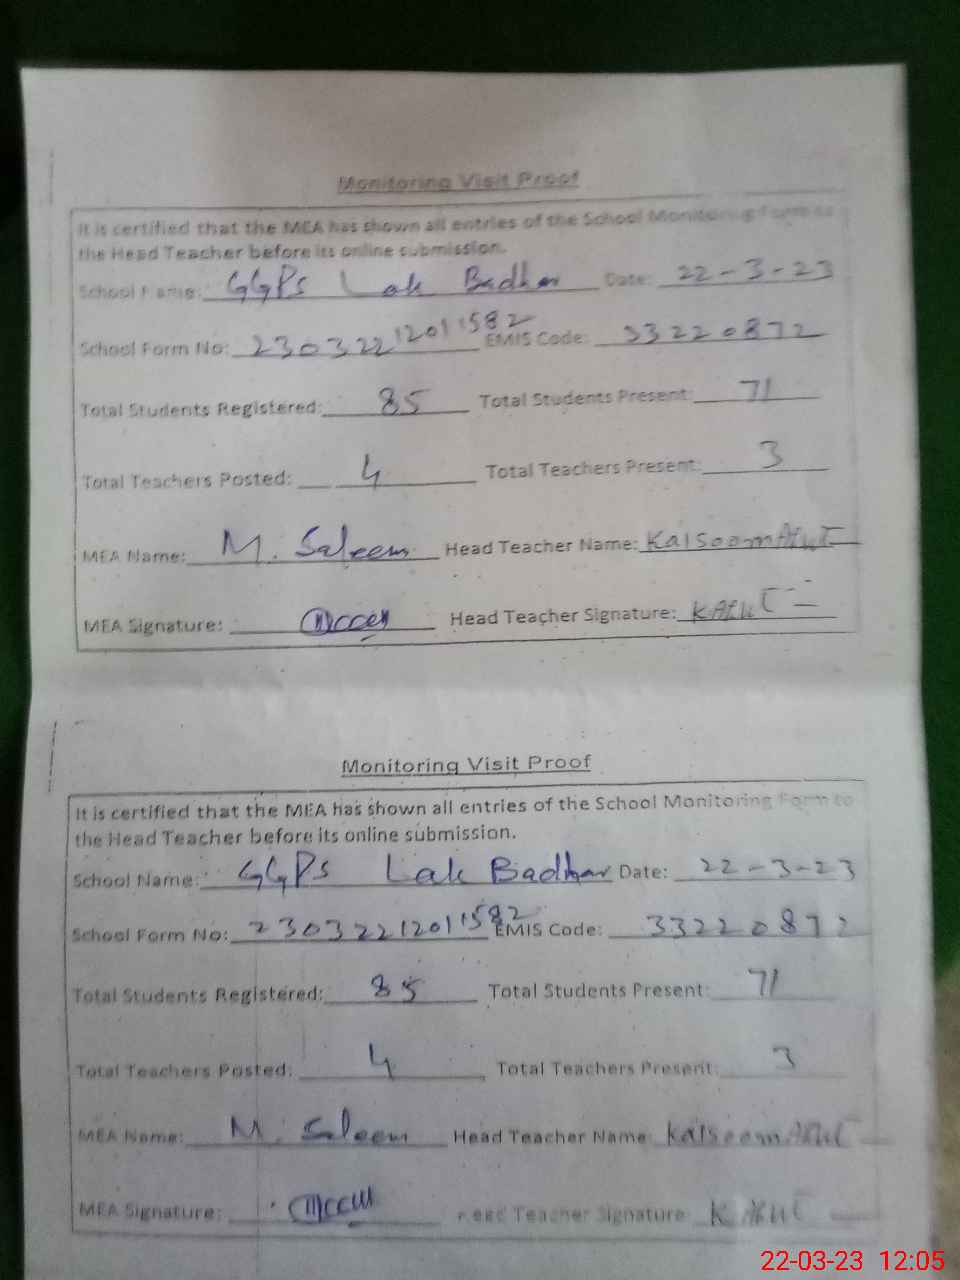 Monitoring Visit Proof
It is certified that the MEA has shown all entries of the School Monitoring Form to
the Head Teacher before its online submission.
School Name: GGPS Lak Badhar Date: 22-3-23
School Form No: 23032212011582 EMIS Code: 33220872
Total Students Registered: 85 Total Students Present: 71
Total Teachers Posted: 4 Total Teachers Present: 3
MEA Name: M. Saleem Head Teacher Name: Kalsoom
MEA Signature: Head Teacher Signature:
Monitoring Visit Proof
It is certified that the MEA has shown all entries of the School Monitoring Form to
the Head Teacher before its online submission.
School Name: GGPS Lak Badhar Date: 22-3-23
School Form No: 23032212011582 EMIS Code: 33220872
Total Students Registered: 85 Total Students Present: 71
Total Teachers Posted: 4 Total Teachers Present: 3
MEA Name: M. Saleem Head Teacher Name Kalsoom
MEA Signature: Head Teacher Signature
22-03-23 12:05